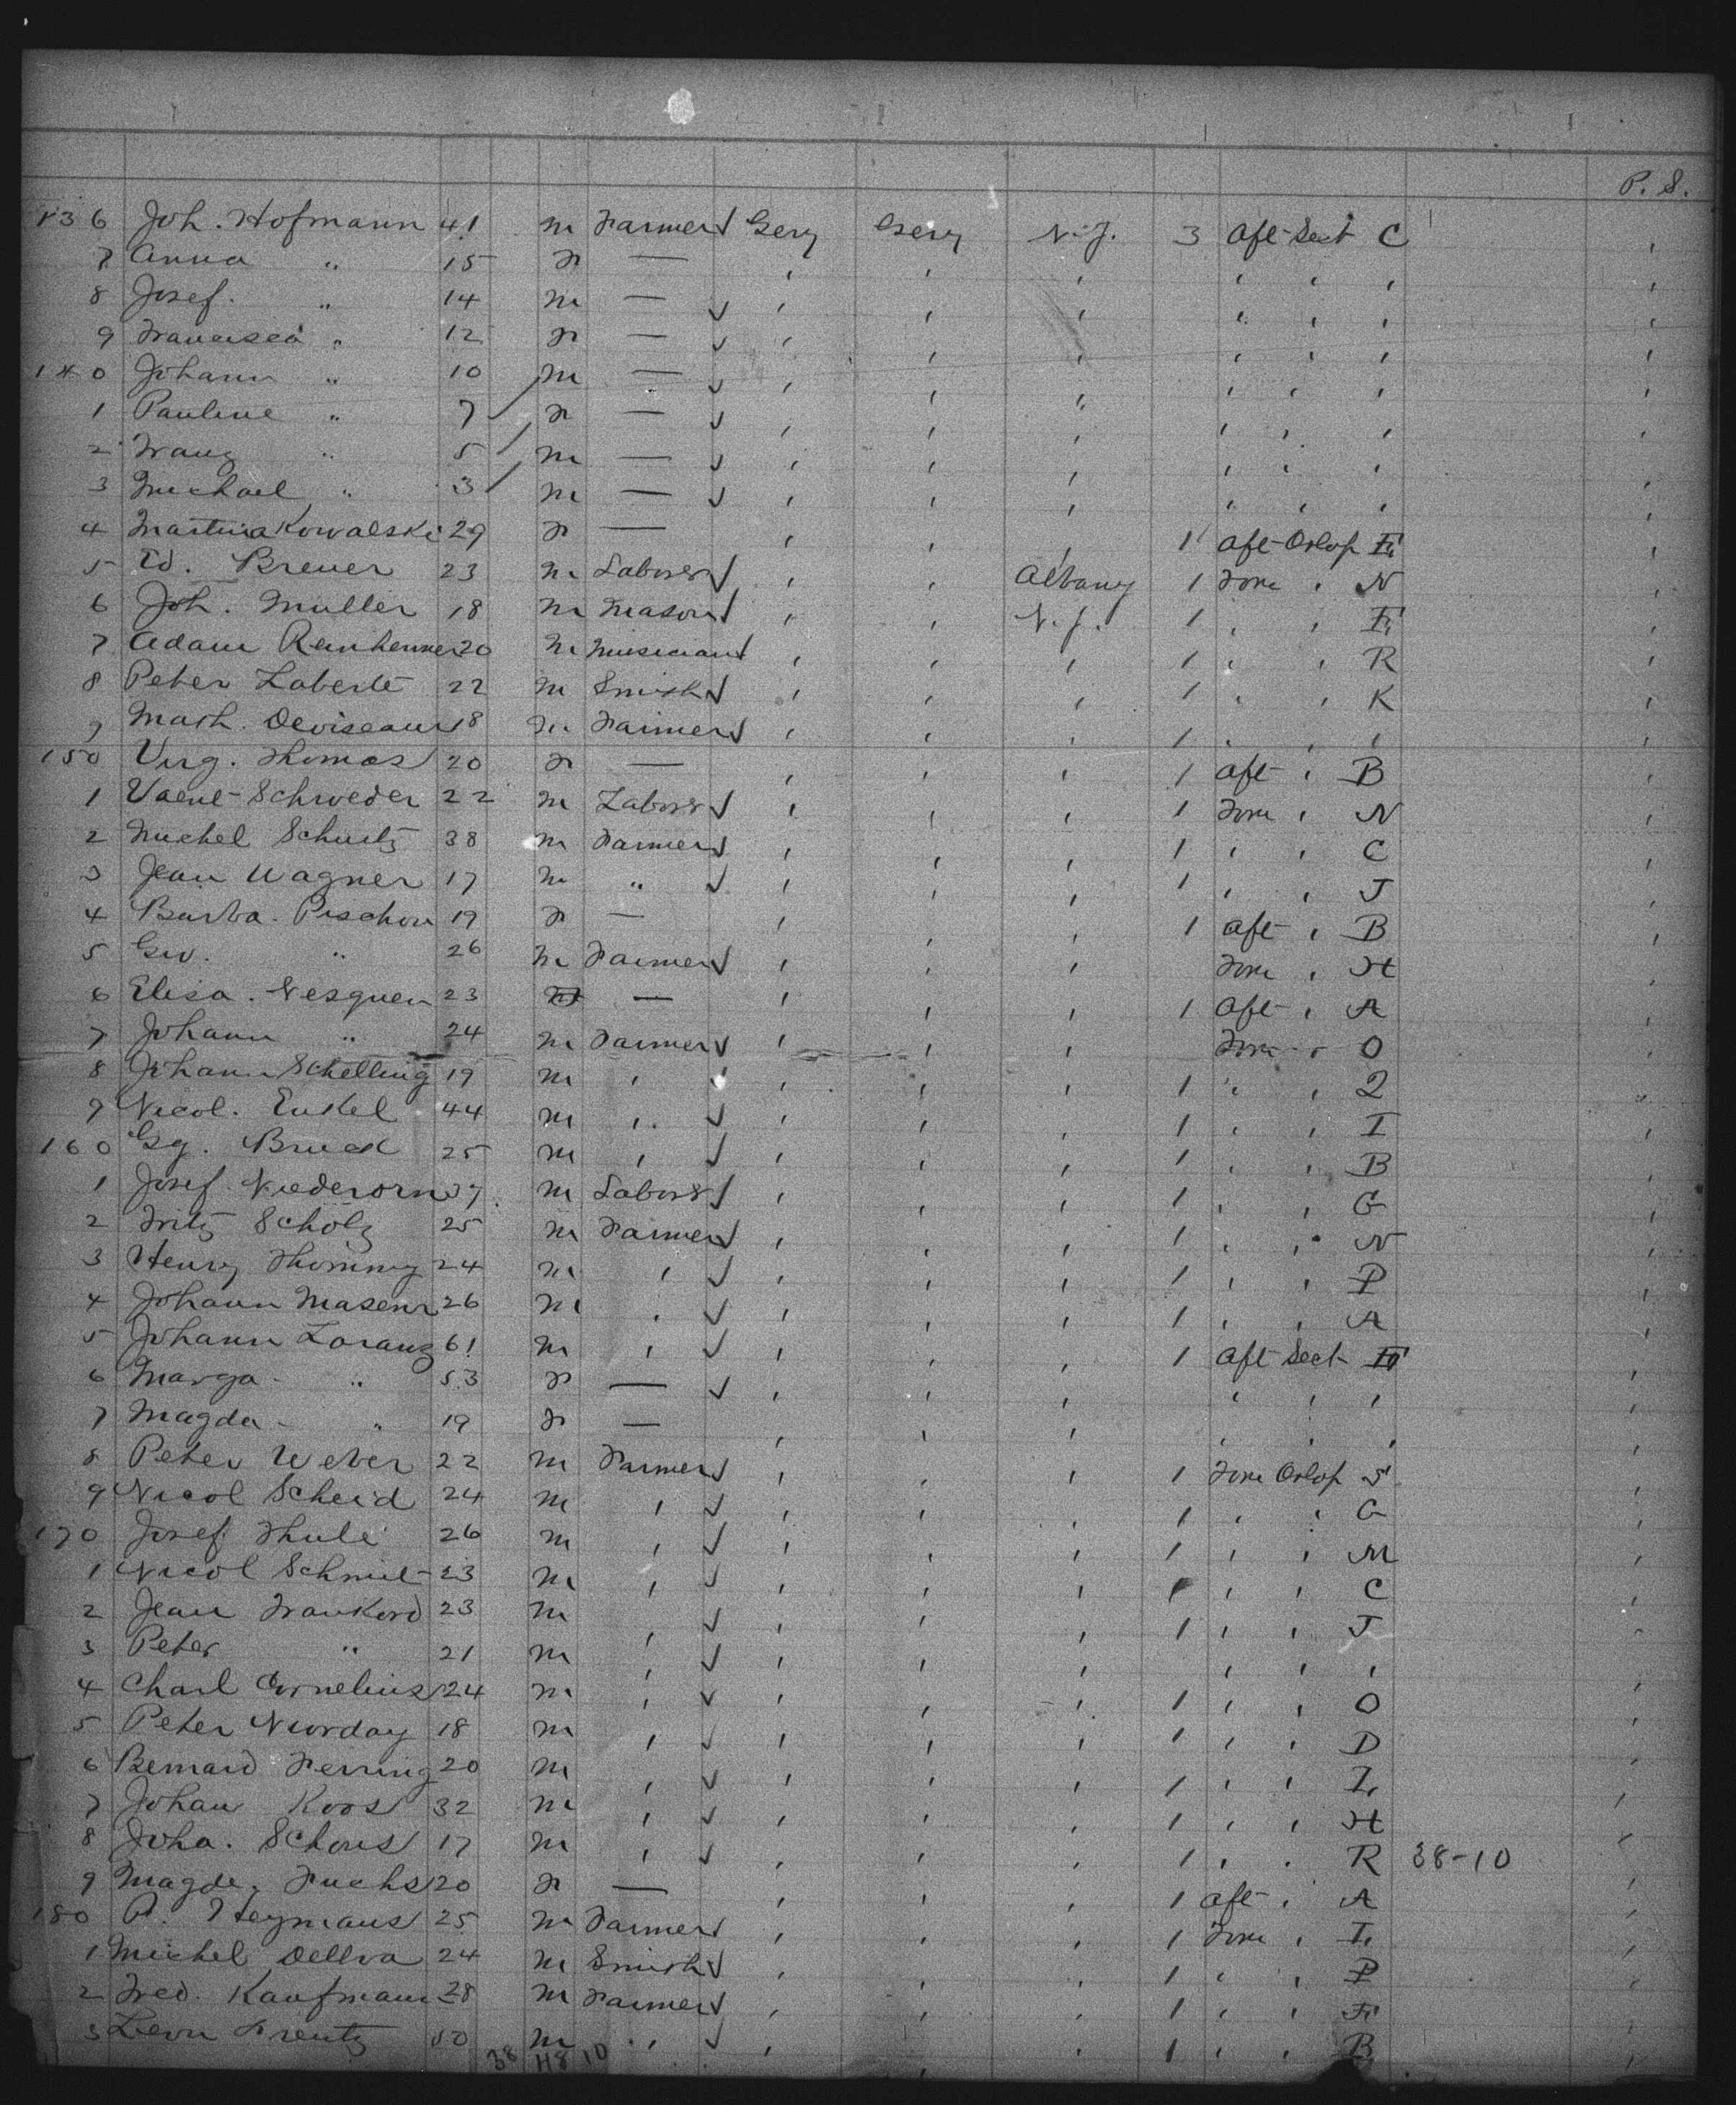 P. S.
136 Joh. Hofmann 41 m Farmer Gery Gery N.J. 3 Aft Sect C
7 Anna " 15 f —
8 Josef. " 14 m —
9 Francisca " 12 f —
140 Johann " 10 m —
1 Pauline " 7 f —
2 Franz " 5 m —
3 Michael " 3 m —
4 Martina Kowalski 29 f — 1 Aft Orlop
5 Ed. Breuer 23 m Labour Albany 1 Fore " N
6 Joh. Muller 18 m Mason N.J. 1
7 Adam 20 m Musician 1 R
8 Peter Laberte 22 m Smith 1 K
9 Math. 18 m Farmer 1
150 Virg. Thomas 20 f — 1 Aft " B
1 Schroeder 22 m Labour 1 Fore " N
2 Michel Schultz 38 m Farmer 1 C
3 Jean Wagner 17 m " 1 J
4 Barba. Pischon 19 f — 1 Aft " B
5 Geo. " 26 m Farmer Fore " H
6 Elisa. Nesquen 23 — 1 Aft " A
7 Johann " 24 m Farmer Fore " O
8 Johann Schelling 19 m " 1
9 Nicol. Enkel 44 m " 1 I
160 Gg. Bruck 25 m " 1 B
1 Josef Niederorn 37 m Labour 1 G
2 Fritz Scholz 25 m Farmer 1 N
3 Henry Thommy 24 m " 1 P
4 Johann Masenr 26 m " 1 A
5 Johann Loranz 61 m " 1 Aft Sect
6 Marga - " 53 f —
7 Magda - " 19 f —
8 Peter Weber 22 m Farmer 1 Fore Orlop S
9 Nicol Scheid 24 m " 1 G
170 Josef Thule 26 m " 1 M
1 Nicol Schmit 23 m " 1 C
2 Jean Frankord 23 m " 1 J
3 Peter " 21 m "
4 Charl Cornelius 24 m " 1 O
5 Peter Nurday 18 m " 1 D
6 Bernard Ferring 20 m " 1
7 Johan Koos 32 m " 1 H
8 Joha. Schous 17 m " 1 R 38-10
9 Magda. Fuchs 20 f — 1 Aft " A
180 P. Heymans 25 m Farmer 1 Fore
1 Michel Dellva 24 m Smith 1 P
2 Fred. Kaufmann 28 m Farmer 1
3 Leon Frentz 50 m " 1 B
38 48 10